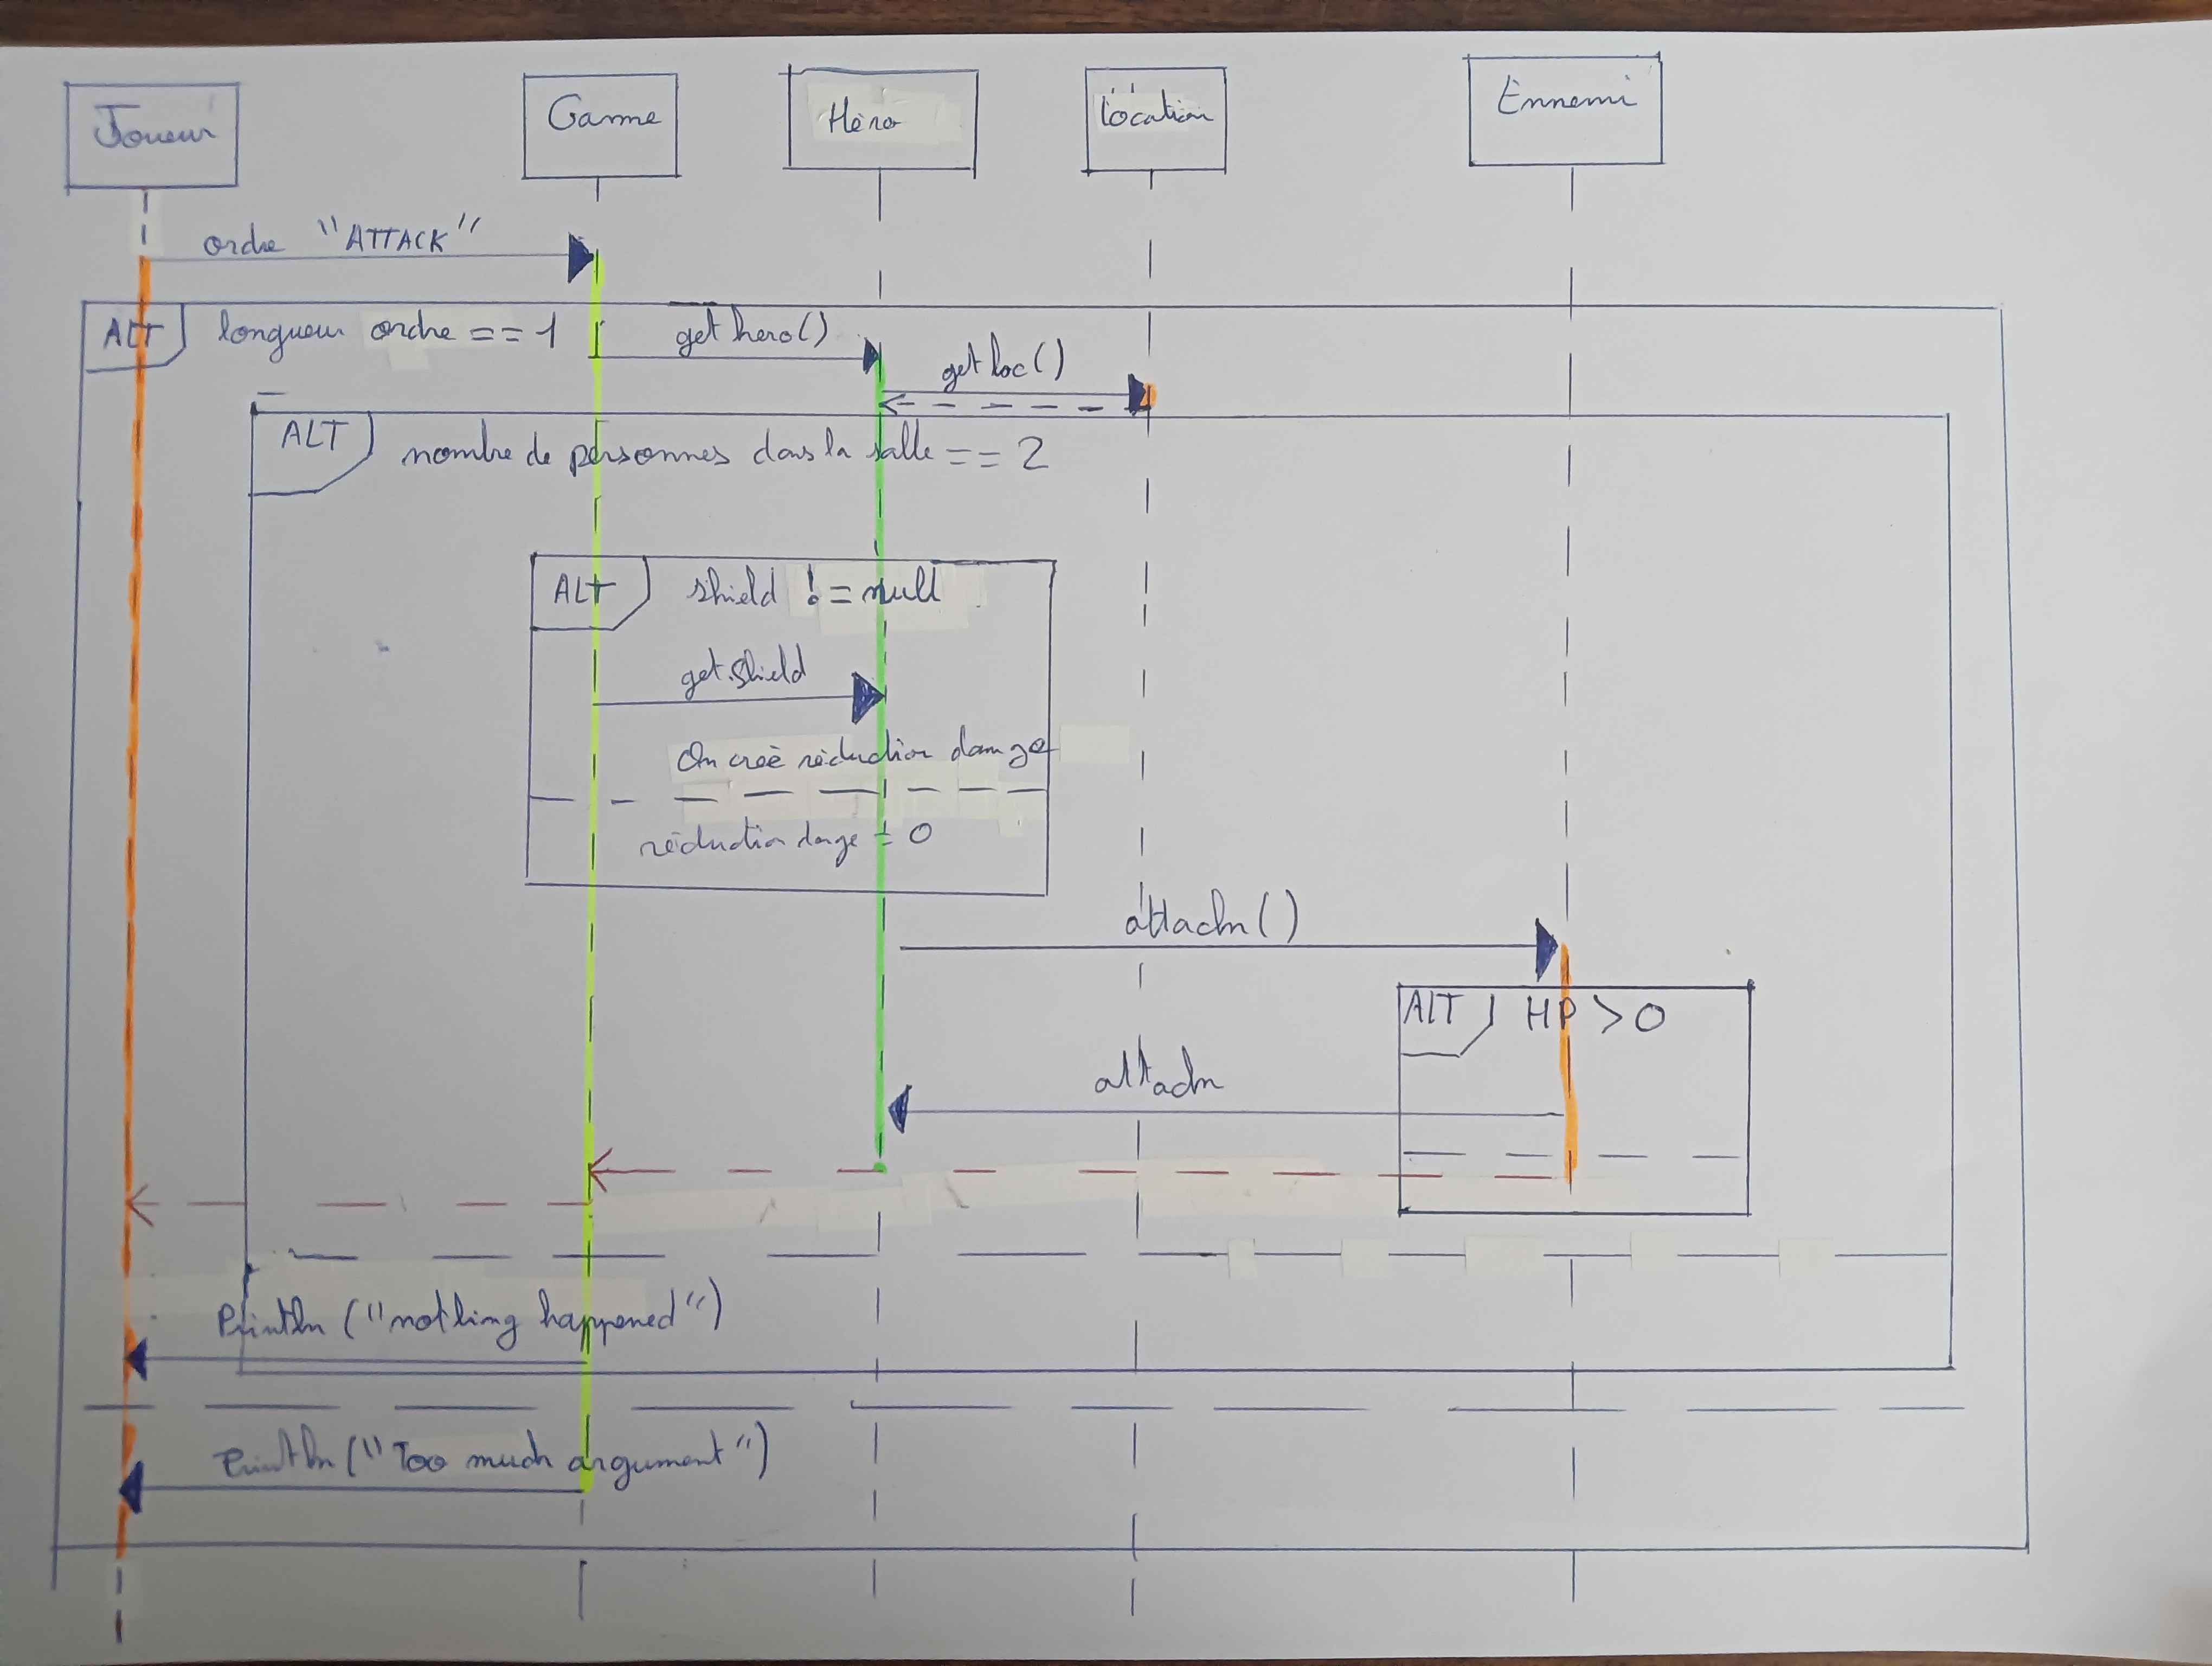 Joueur
Game
Héro
Location
Ennemi
ordre "ATTACK"
ALT longueur ordre == 1
get hero()
get loc()
ALT nombre de personnes dans la salle == 2
ALT shield != null
get shield
On crée réduction damge
réduction damge = 0
attack()
ALT HP > 0
attack
Println ("nothing happened")
Println ("Too much argument")